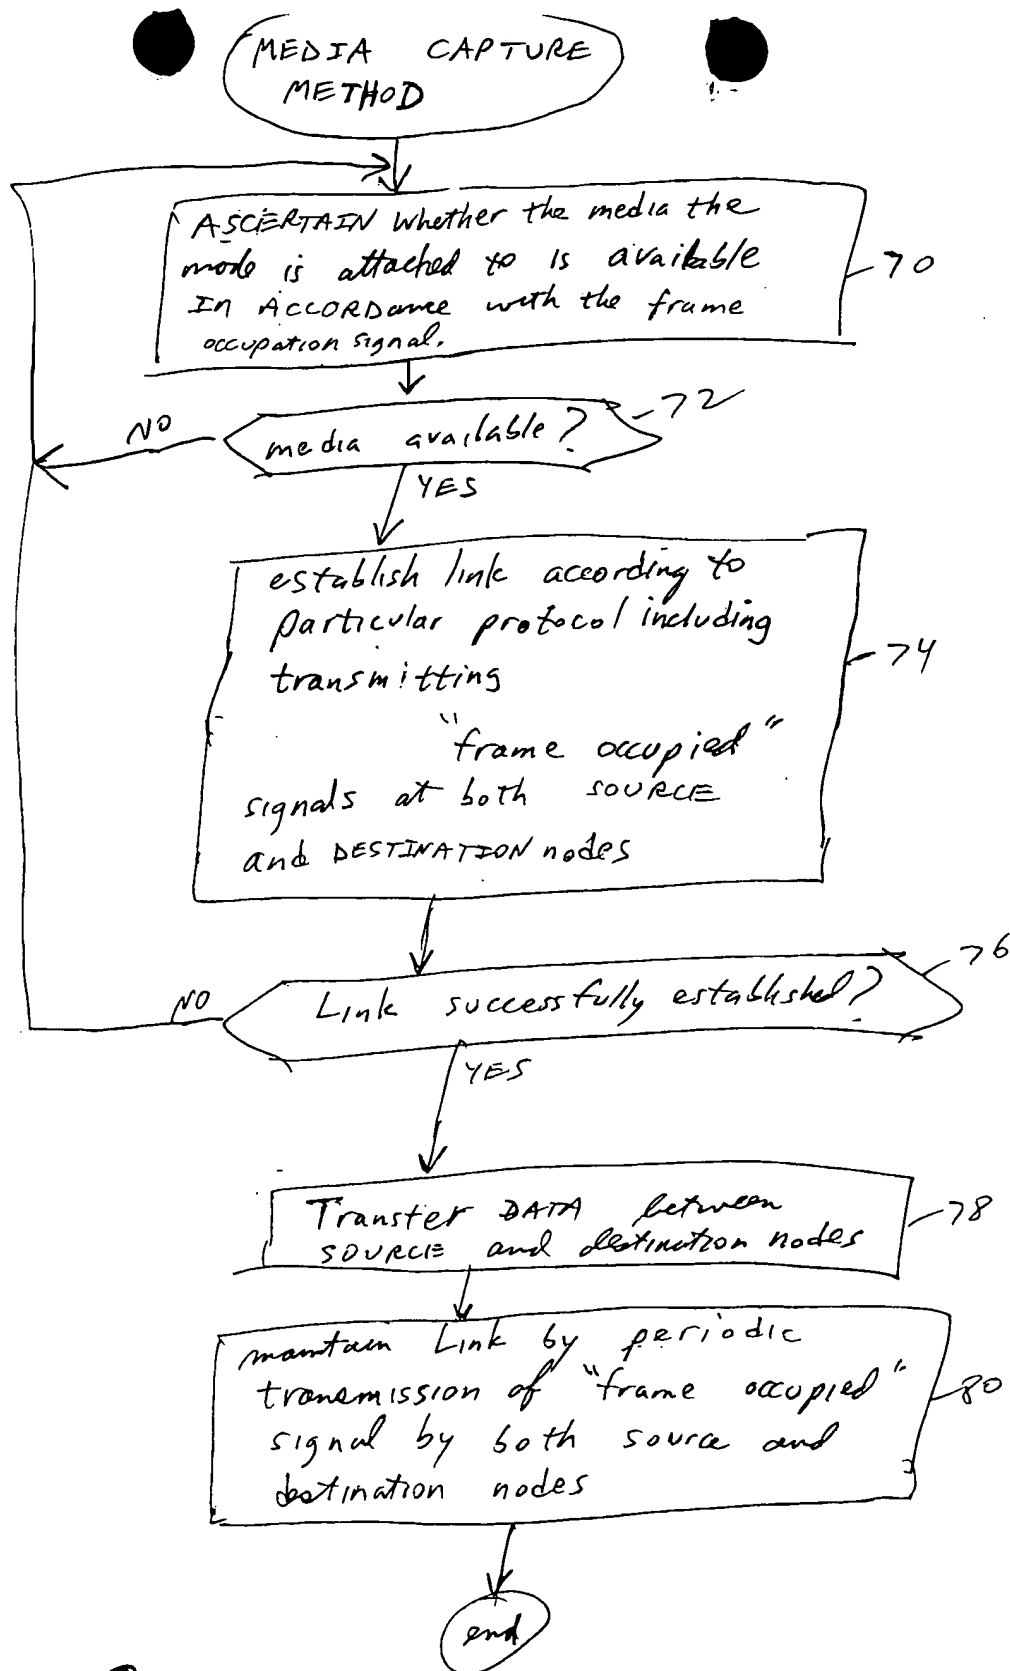 MEDIA CAPTURE
METHOD
ASCERTAIN whether the media the
mode is attached to is available
In ACCORDance with the frame
occupation signal.
70
media available?
72
NO
YES
establish link according to
particular protocol including
transmitting
"frame occupied"
signals at both SOURCE
and DESTINATION nodes
74
Link successfully established?
76
NO
YES
Transfer DATA between
SOURCE and destination nodes
78
maintain Link by periodic
transmission of "frame occupied"
signal by both source and
destination nodes
80
end